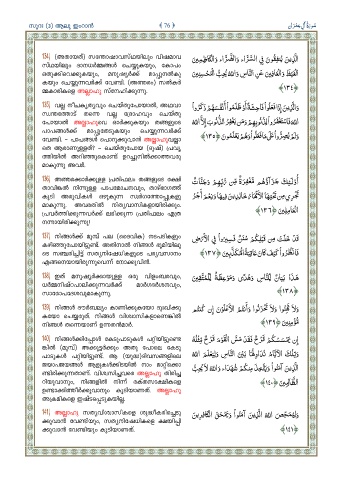 സൂറ (3) ആലു ഇംറാൻ
﴾ 76 ﴿
سُورَةُ آلِ عِمْرَان
134) (അതായത്) സന്തോഷാവസ്ഥയിലും വിഷമാവ
സ്ഥയിലും ദാനധർമ്മങ്ങൾ ചെയ്യുകയും, കോപം
ഒതുക്കിവെക്കുകയും, മനുഷ്യർക്ക് മാപ്പുനൽകു
കയും ചെയ്യുന്നവർക്ക് വേണ്ടി. (അത്തരം) സൽകർ
മ്മകാരികളെ അല്ലാഹു സ്നേഹിക്കുന്നു.
الَّذِينَ يُنفِقُونَ فِي السَّرَّاءِ وَالضَّرَّاءِ وَالْكَاظِمِينَ
الْغَيْظَ وَالْعَافِينَ عَنِ النَّاسِ وَاللهُ يُحِبُّ الْمُحْسِنِينَ
﴿١٣٤﴾
135) വല്ല നീചകൃത്യവും ചെയ്തുപോയാൽ, അഥവാ
സ്വന്തത്തോട് തന്നെ വല്ല ദ്രോഹവും ചെയ്തു
പോയാൽ അല്ലാഹുവെ ഓർക്കുകയും തങ്ങളുടെ
പാപങ്ങൾക്ക് മാപ്പുതേടുകയും ചെയ്യുന്നവർക്ക്
വേണ്ടി. - പാപങ്ങൾ പൊറുക്കുവാൻ അല്ലാഹുവല്ലാ
തെ ആരാണുള്ളത്? - ചെയ്തുപോയ (ദുഷ്) പ്രവൃ
ത്തിയിൽ അറിഞ്ഞുകൊണ്ട് ഉറച്ചുനിൽക്കാത്തവരു
മാകുന്നു അവർ.
وَالَّذِينَ إِذَا فَعَلُوا فَاحِشَةً أَوْ ظَلَمُوا أَنفُسَهُمْ ذَكَرُوا
اللهَ فَاسْتَغْفَرُوا لِذُنُوبِهِمْ وَمَن يَغْفِرُ الذُّنُوبَ إِلَّا اللهُ
وَلَمْ يُصِرُّوا عَلَى مَا فَعَلُوا وَهُمْ يَعْلَمُونَ ﴿١٣٥﴾
136) അത്തരക്കാർക്കുള്ള പ്രതിഫലം തങ്ങളുടെ രക്ഷി
താവിങ്കൽ നിന്നുള്ള പാപമോചനവും, താഴ്ഭാഗത്ത്
കൂടി അരുവികൾ ഒഴുകുന്ന സ്വർഗത്തോപ്പുകളു
മാകുന്നു. അവരതിൽ നിത്യവാസികളായിരിക്കും.
പ്രവർത്തിക്കുന്നവർക്ക് ലഭിക്കുന്ന പ്രതിഫലം എത്ര
നന്നായിരിക്കുന്നു!
أُولَئِكَ جَزَآؤُهُم مَّغْفِرَةٌ مِّن رَّبِّهِمْ وَجَنَّاتٌ
تَجْرِي مِن تَحْتِهَا الْأَنْهَارُ خَالِدِينَ فِيهَا وَنِعْمَ أَجْرُ
الْعَامِلِينَ ﴿١٣٦﴾
137) നിങ്ങൾക്ക് മുമ്പ് പല (ദൈവിക) നടപടികളും
കഴിഞ്ഞുപോയിട്ടുണ്ട്. അതിനാൽ നിങ്ങൾ ഭൂമിയിലൂ
ടെ സഞ്ചരിച്ചിട്ട് സത്യനിഷേധികളുടെ പര്യവസാനം
എങ്ങനെയായിരുന്നുവെന്ന് നോക്കുവിൻ.
قَدْ خَلَتْ مِن قَبْلِكُمْ سُنَنٌ فَسِيرُوا فِي الْأَرْضِ
فَانظُرُوا كَيْفَ كَانَ عَاقِبَةُ الْمُكَذِّبِينَ ﴿١٣٧﴾
138) ഇത് മനുഷ്യർക്കായുള്ള ഒരു വിളംബരവും,
ധർമ്മനിഷ്ഠപാലിക്കുന്നവർക്ക് മാർഗദർശനവും,
സാരോപദേശവുമാകുന്നു.
هَذَا بَيَانٌ لِّلنَّاسِ وَهُدًى وَمَوْعِظَةٌ لِّلْمُتَّقِينَ
﴿١٣٨﴾
139) നിങ്ങൾ ദൗർബല്യം കാണിക്കുകയോ ദുഃഖിക്കു
കയോ ചെയ്യരുത്. നിങ്ങൾ വിശ്വാസികളാണെങ്കിൽ
നിങ്ങൾ തന്നെയാണ് ഉന്നതൻമാർ.
وَلَا تَهِنُوا وَلَا تَحْزَنُوا وَأَنتُمُ الْأَعْلَوْنَ إِن كُنتُم
مُّؤْمِنِينَ ﴿١٣٩﴾
140) നിങ്ങൾക്കിപ്പോൾ കേടുപാടുകൾ പറ്റിയിട്ടുണ്ടെ
ങ്കിൽ (മുമ്പ്) അക്കൂട്ടർക്കും അതുപോലെ കേടു
പാടുകൾ പറ്റിയിട്ടുണ്ട്. ആ (യുദ്ധ)ദിവസങ്ങളിലെ
ജയാപജയങ്ങൾ ആളുകൾക്കിടയിൽ നാം മാറ്റിക്കൊ
ണ്ടിരിക്കുന്നതാണ്. വിശ്വസിച്ചവരെ അല്ലാഹു തിരിച്ച
റിയുവാനും, നിങ്ങളിൽ നിന്ന് രക്തസാക്ഷികളെ
ഉണ്ടാക്കിത്തീർക്കുവാനും കൂടിയാണത്. അല്ലാഹു
അക്രമികളെ ഇഷ്ടപ്പെടുകയില്ല.
إِن يَمْسَسْكُمْ قَرْحٌ فَقَدْ مَسَّ الْقَوْمَ قَرْحٌ مِّثْلُهُ
وَتِلْكَ الْأَيَّامُ نُدَاوِلُهَا بَيْنَ النَّاسِ وَلِيَعْلَمَ اللهُ
الَّذِينَ آمَنُوا وَيَتَّخِذَ مِنكُمْ شُهَدَاءَ وَاللهُ لَا يُحِبُّ
الظَّالِمِينَ ﴿١٤٠﴾
141) അല്ലാഹു സത്യവിശ്വാസികളെ ശുദ്ധീകരിച്ചെടു
ക്കുവാൻ വേണ്ടിയും, സത്യനിഷേധികളെ ക്ഷയിപ്പി
ക്കുവാൻ വേണ്ടിയും കൂടിയാണത്.
وَلِيُمَحِّصَ اللهُ الَّذِينَ آمَنُوا وَيَمْحَقَ الْكَافِرِينَ
﴿١٤١﴾